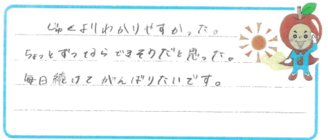 じゅくよりわかりやすかった。
ちょっとずつならできそうだと思った。
毎日続けてがんばりたいです。